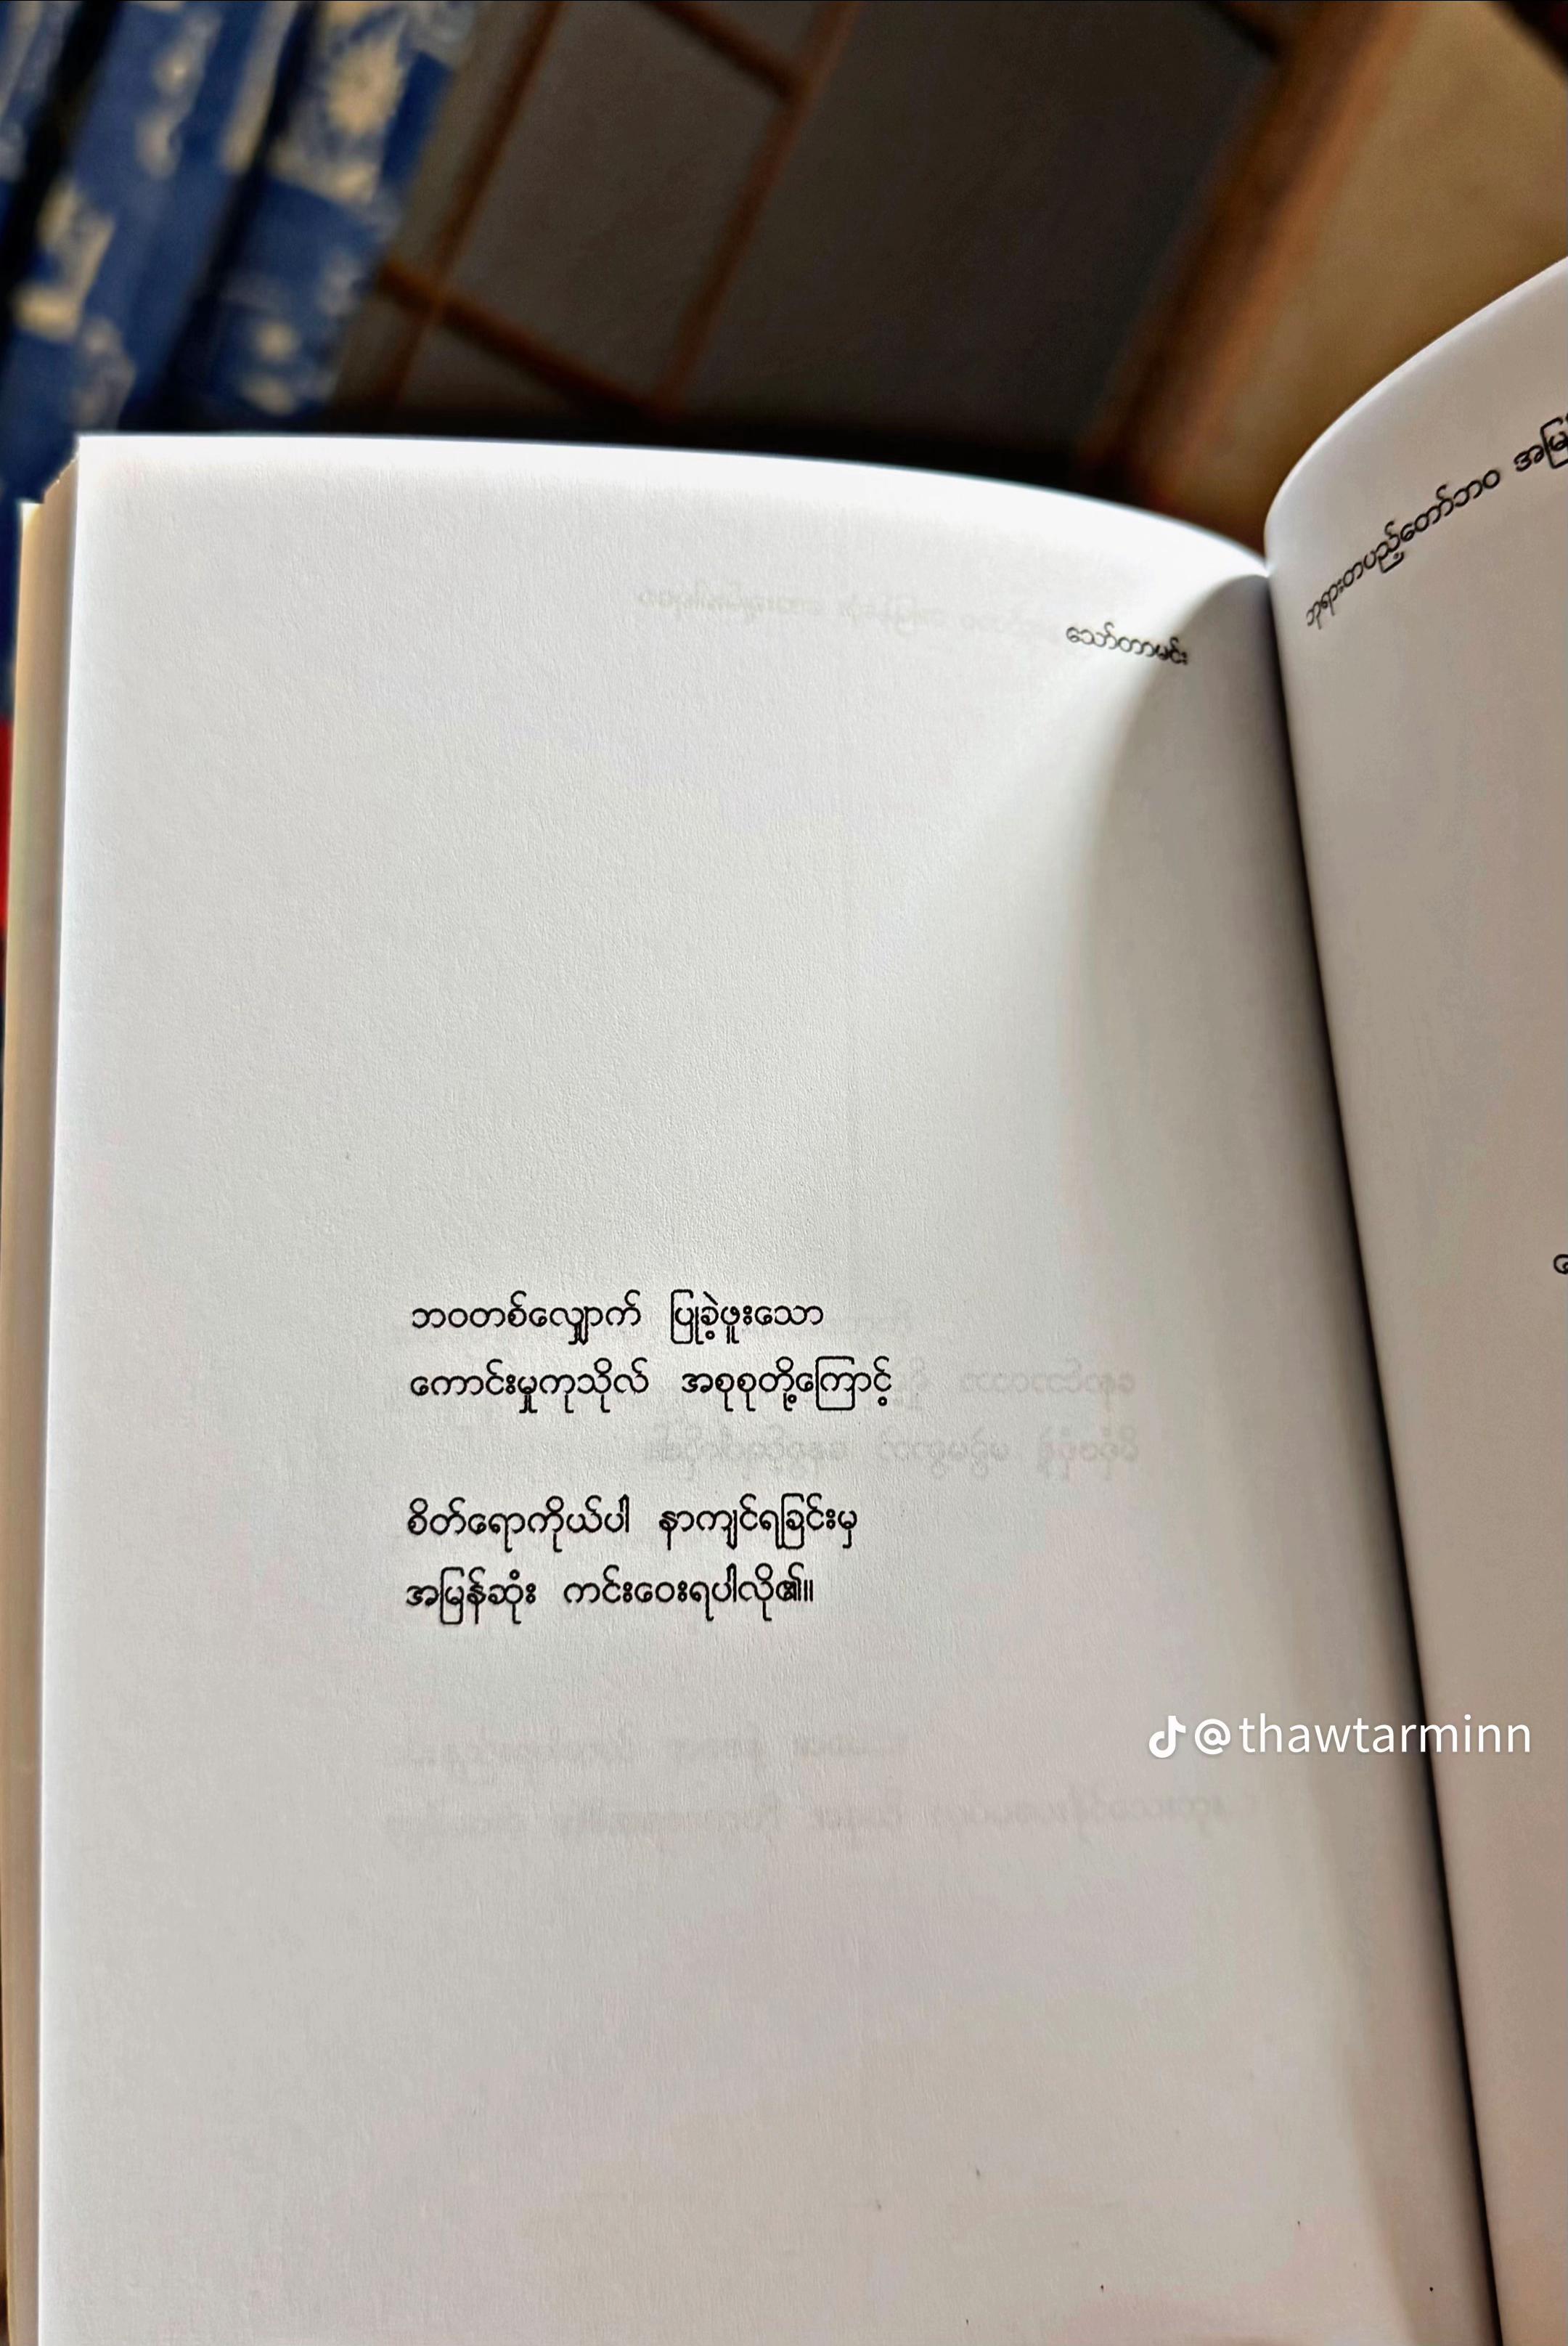 သော်တာမင်း
ဘဝတစ်လျှောက် ပြုခဲ့ဖူးသော
ကောင်းမှုကုသိုလ် အစုစုတို့ကြောင့်
စိတ်ရောကိုယ်ပါ နာကျင်ရခြင်းမှ
အမြန်ဆုံး ကင်းဝေးရပါလို၏။
ဘုရားတပည့်တော်ဘဝ
@thawtarminn